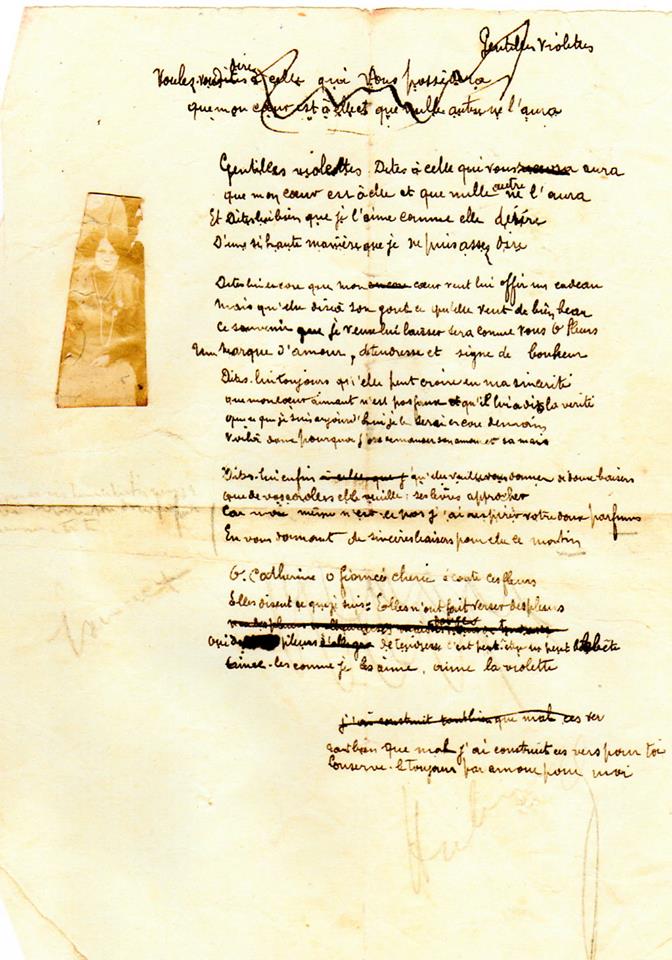 Gentilles violettes
Voulez-vous dire à celle qui vous possèdera
que mon cœur est à elle et que nulle autre ne l'aura
Gentilles violettes Dites à celle qui vous aura
que mon cœur est à elle et que nulle autre ne l'aura
Et Dites lui bien que je l'aime comme elle désire
D'une si haute manière que je ne puis assez dire
Dites lui encore que mon encore cœur veut lui offrir un cadeau
Mais qu'elle dise à son gout ce qu'elle veut de bien beau
Ce souvenir que je veux lui laisser sera comme vous O fleurs
Une marque d'amour, de tendresse et signe de bonheur
Dites-lui toujours qu'elle peut croire en ma sincérité
que mon cœur aimant n'est pas faux et qu'il lui a dit la verité
que ce que je suis aujourd'hui je le serai encore demain
Voilà donc pourquoi j'ose demander son amour et sa main
Dites-lui enfin à celle que j' qu'elle veuille vous donner de doux baisers
que de vos corolles elle veuille ses lèvres approcher
Car moi même n'est-ce pas j'ai respirer votre doux parfums
En vous donnant de sincères baisers pour elle ce matin
O Catherine O fiancée cherie écoute ces fleurs
Elles disent ce que je suis Elles m'ont fait verser des pleurs
pleurs de tendresse c'est peut-être un peut bête
aime-les comme je les aime, aime la violette
j'ai construit tant bien que mal ces ver
tant bien que mal j'ai construit ces vers pour toi
Conserve-le toujours par amour pour moi